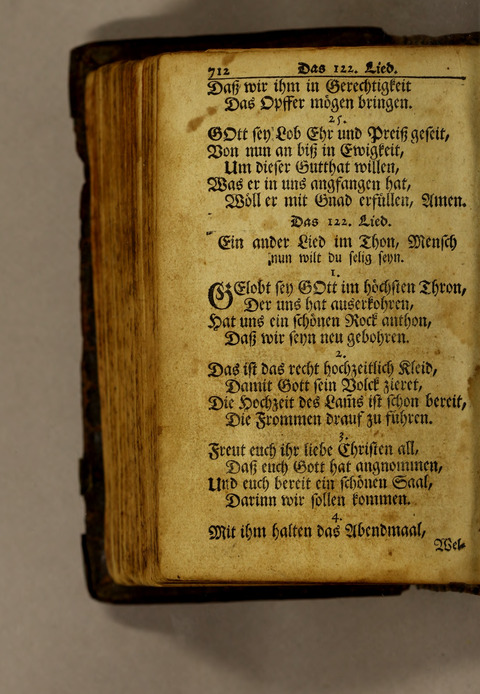 712 Das 122. Lied.
Daß wir ihm in Gerechtigkeit
Das Opffer mögen bringen.
25.
GOtt sey Lob Ehr und Preiß geseit,
Von nun an biß in Ewigkeit,
Um dieser Gutthat willen,
Was er in uns angfangen hat,
Wöll er mit Gnad erfüllen, Amen.
Das 122. Lied.
Ein ander Lied im Thon, Mensch
nun wilt du selig seyn.
1.
GElobt sey GOtt im höchsten Thron,
Der uns hat auserkohren,
Hat uns ein schönen Rock anthon,
Daß wir seyn neu gebohren.
2.
Das ist das recht hochzeitlich Kleid,
Damit Gott sein Volck zieret,
Die Hochzeit des Lam̃s ist schon bereit,
Die Frommen drauf zu führen.
3.
Freut euch ihr liebe Christen all,
Daß euch Gott hat angnommen,
Und euch bereit ein schönen Saal,
Darinn wir sollen kommen.
4.
Mit ihm halten das Abendmaal,
Wel-